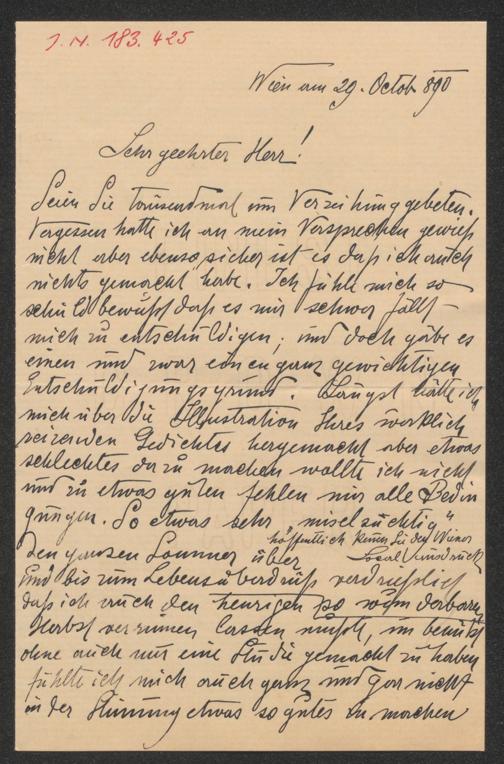 J.N. 183.425
Wien am 29. Octob 890
Sehr geehrter Herr!
Seien Sie tausendmal um Verzeihung gebeten.
Vergessen hatte ich an mein Versprechen gewiß
nicht aber ebenso sicher ist es daß ich auch
nichts gemacht habe. Ich fühle mich so
schuldbewußt daß es mir schwer fällt
mich zu entschuldigen; und doch gäbe es
einen und zwar einen ganz gewichtigen
Entschuldigungsgrund. Längst hätte ich
mich über die Illustration Ihres wirklich
reizenden Gedichtes hergemacht aber etwas
schlechtes dazu machen wollte ich nicht
und zu etwas guten fehlen mir alle Bedin
gungen. So etwas sehr „miselzüchtig"
hoffentlich kennen Sie den Wiener
Local Ausdruck
den ganzen Sommer über
und bis zum Lebensüberdruß verdrießlich
daß ich auch den heurigen so wunderbaren
Herbst versäumen lassen mußte, unbenützt
ohne auch nur eine Studie gemacht zu haben
fühlte ich mich auch ganz und gar nicht
in der Stimmung etwas so gutes zu machen